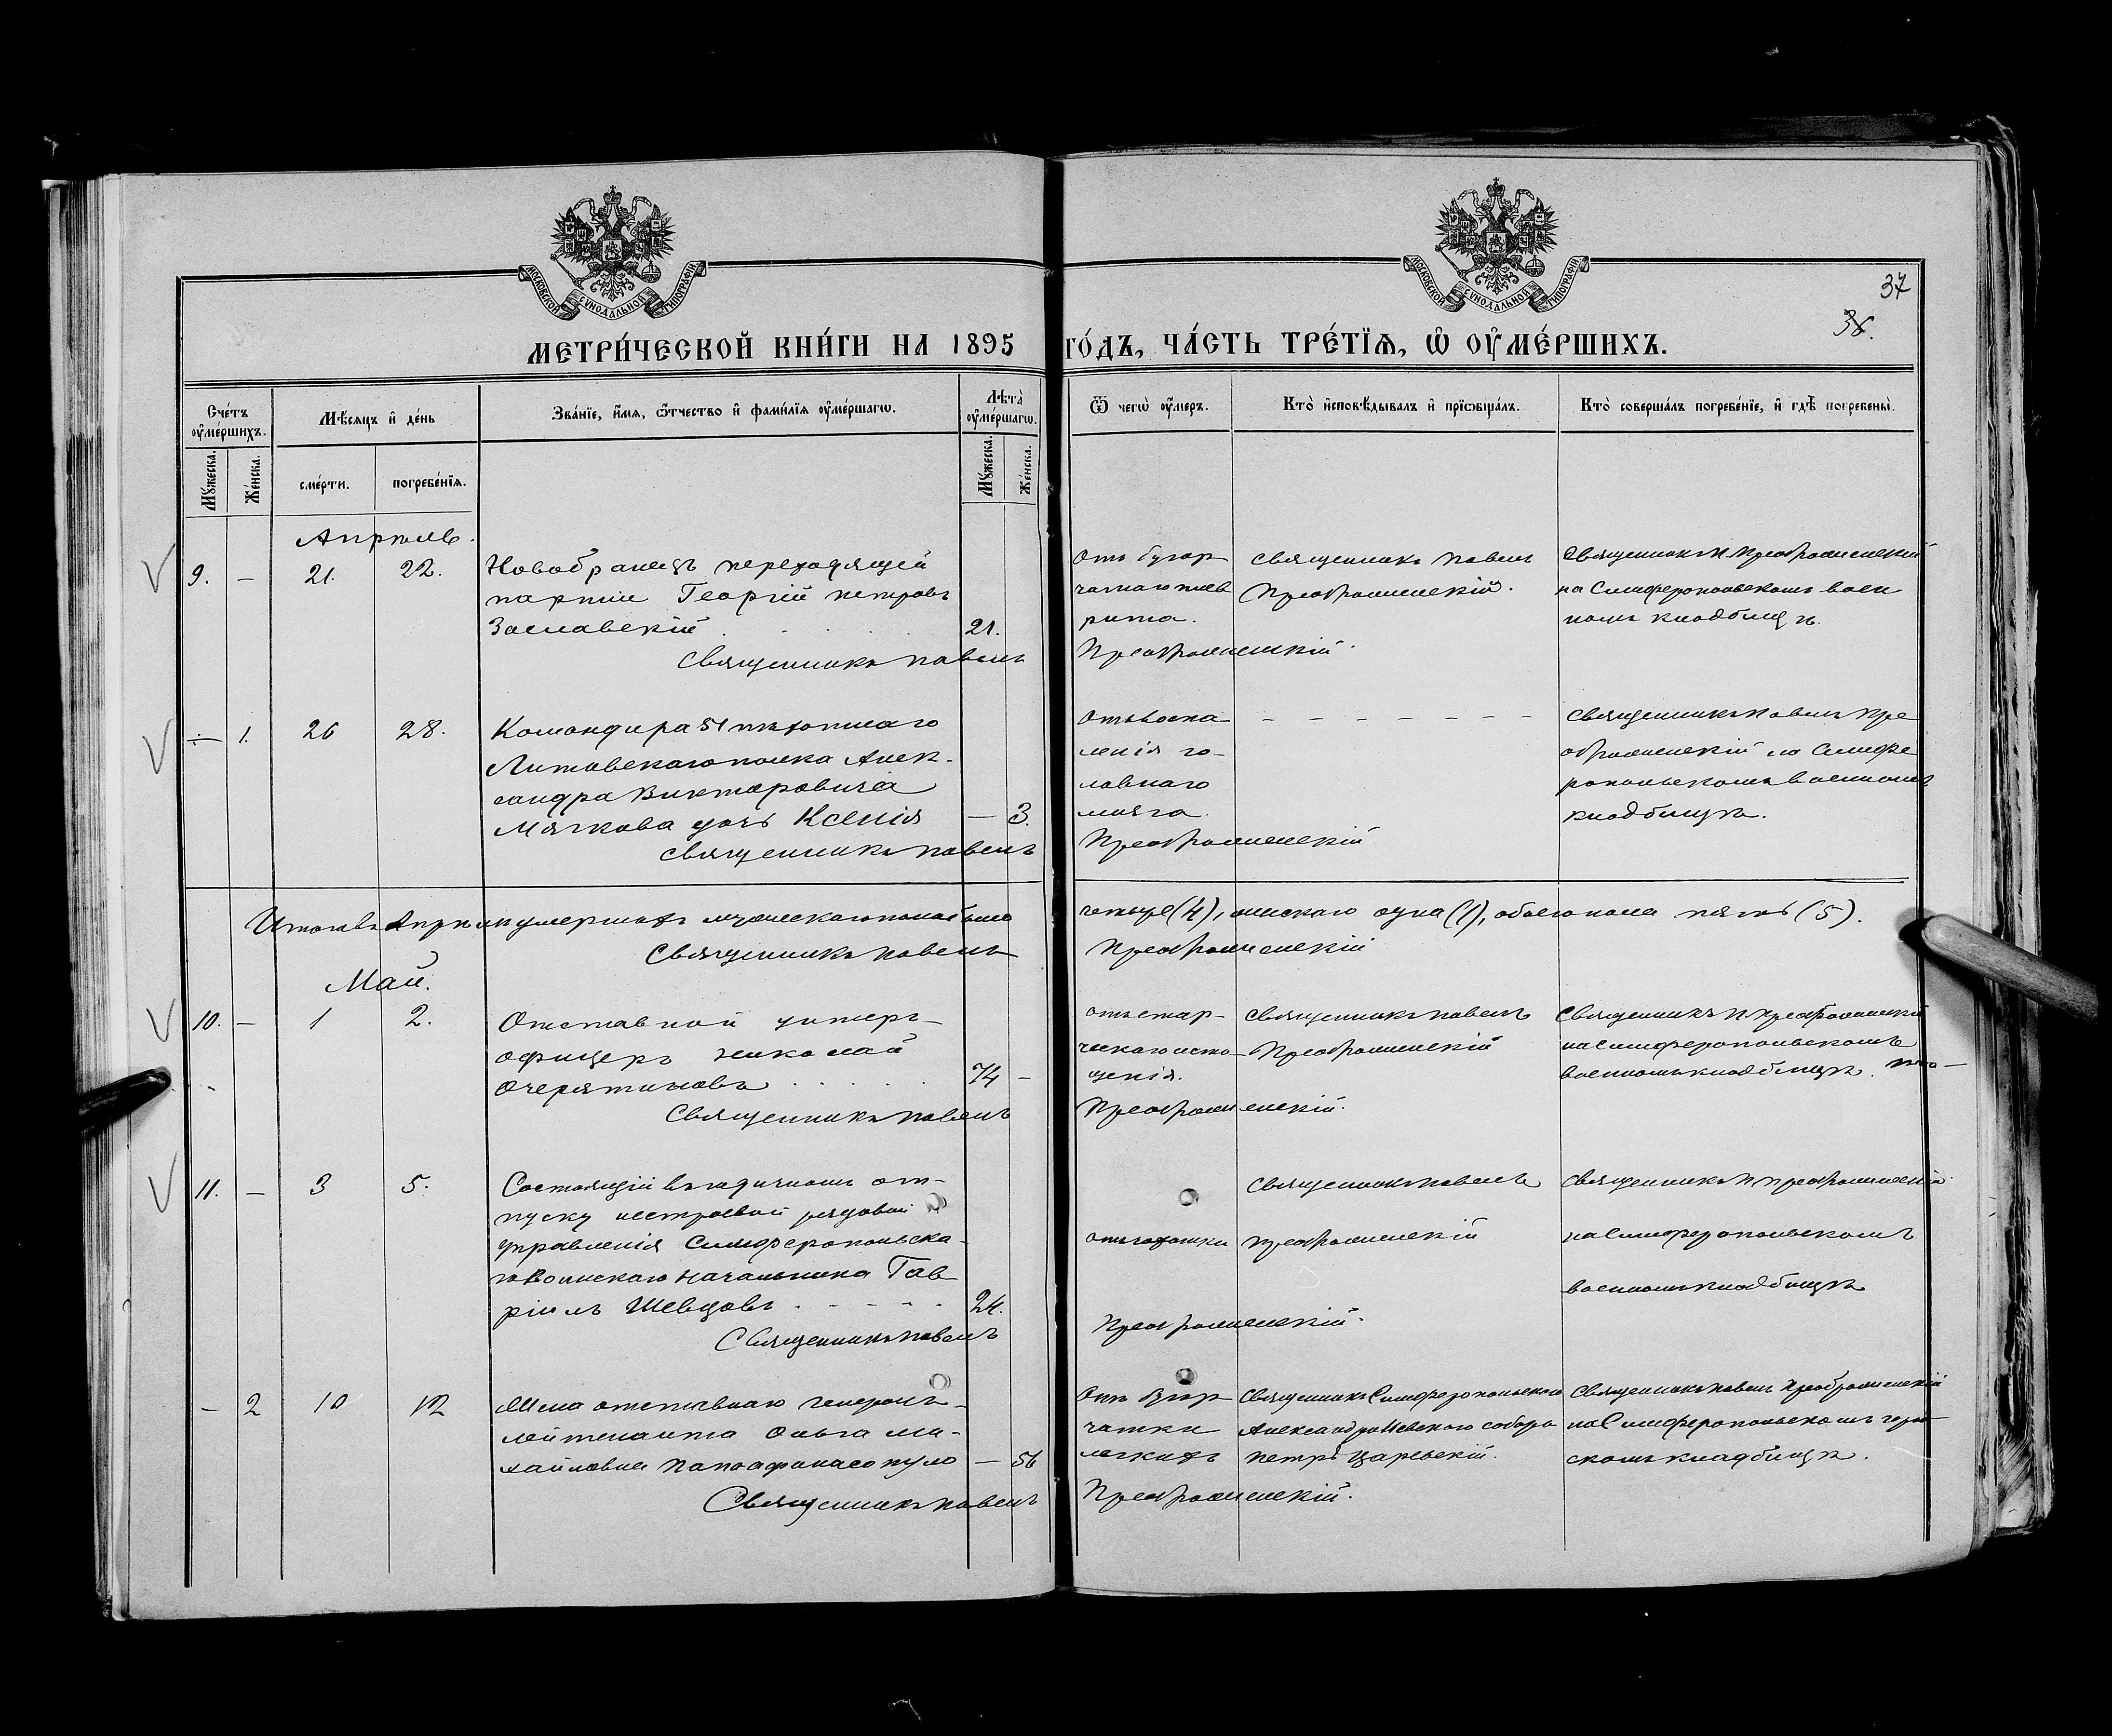 МОСКОВСКОЙ СУНОДАЛЬНОЙ ТИПОГРАФІИ
МОСКОВСКОЙ СУНОДАЛЬНОЙ ТИПОГРАФІИ
37
36.
МЕТРИ́ЧЕСКОЙ КНИ́ГИ НА 1895 ГО́ДЪ, ЧА́СТЬ ТРЕ́ТЇѦ, Ѡ҆ ОУ҆МЕ́РШИХЪ.
Сче́тъ оу҆ме́ршихъ.
Мѣ́сяцъ и҆ де́нь
Зва́нїе, и҆́мя, ѻ҆́тчество и҆ фами́лїя оу҆ме́ршагѡ.
Лѣ́та оу҆ме́ршагѡ.
Ѿ чегѡ̀ оу҆́меръ.
Кто̀ и҆сповѣ́дывалъ и҆ прїѡбща́лъ.
Кто̀ соверша́лъ погребе́нїе, и҆ гдѣ̀ погребены̀.
Мꙋ́жеска.
Же́нска.
сме́рти.
погребе́нїя.
Мꙋ́жеска.
Же́нска.
Апрѣль.
9. — 21. 22.
Новобранецъ переходящей
партіи Георгій Петровъ
Заславскій 21.
Священникъ Павелъ Преображенскій.
Отъ бугор
чатаго плев
рита.
Священникъ Павелъ
Преображенскій.
Священникъ П Преображенскій
на Симферопольскомъ воен
номъ кладбищѣ.
— 1. 26 28.
Командира 51 пѣхотнаго
Литовскаго полка Алек-
сандра Викторовича
Мягкова дочь Ксенія — 3.
Священникъ Павелъ Преображенскій
Отъ воспа
ленія го-
ловнаго
мозга.
Священникъ Павелъ Пре
ображенскій на Симфе
ропольскомъ военномъ
кладбищѣ.
Итого въ Апрѣлѣ умершихъ мужескаго пола было четыре (4), женскаго одна (1), обоего пола пять (5).
Священникъ Павелъ Преображенскій
Май.
10. — 1 2.
Отставной унтеръ-
офицеръ Николай
74 —
Священникъ Павелъ Преображенскій.
отъ стар-
ческаго исто-
щенія.
Священникъ Павелъ
Преображенскій
Священникъ П Преображенскій
на Симферопольскомъ
военномъ кладбищѣ.
11. — 3 5.
Состоящій въ годичномъ от-
пуску нестроевой рядовой
управленія Симферопольска-
го Воинскаго Начальника Гав
ріилъ Шевцовъ 24.
Священникъ Павелъ Преображенскій.
отъ чахотки
Священникъ Павелъ
Преображенскій
Священникъ П Преображенскій
на Симферопольскомъ
военномъ кладбищѣ
— 2 10 12
Жена отставного генералъ-
лейтенанта Ольга Ми-
хайловна Папаафанасопуло — 56
Священникъ Павелъ Преображенскій.
Отъ бугор
чатки
легкихъ
Священникъ Симферопольскаго
Александро Невскаго собора
Петръ Царевскій.
Священникъ Павелъ Преображенскій
на Симферопольскомъ город
скомъ кладбищѣ.